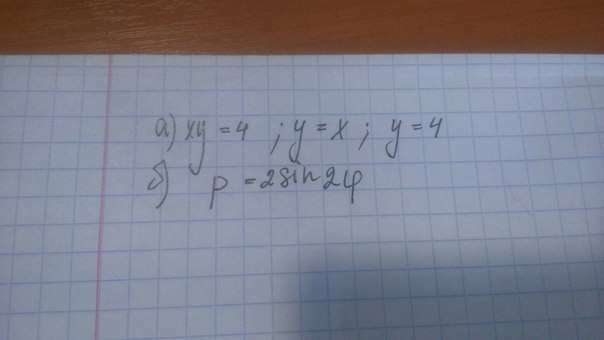 а) xy = 4 ; y = x ; y = 4
б) ρ = 2sin2φ